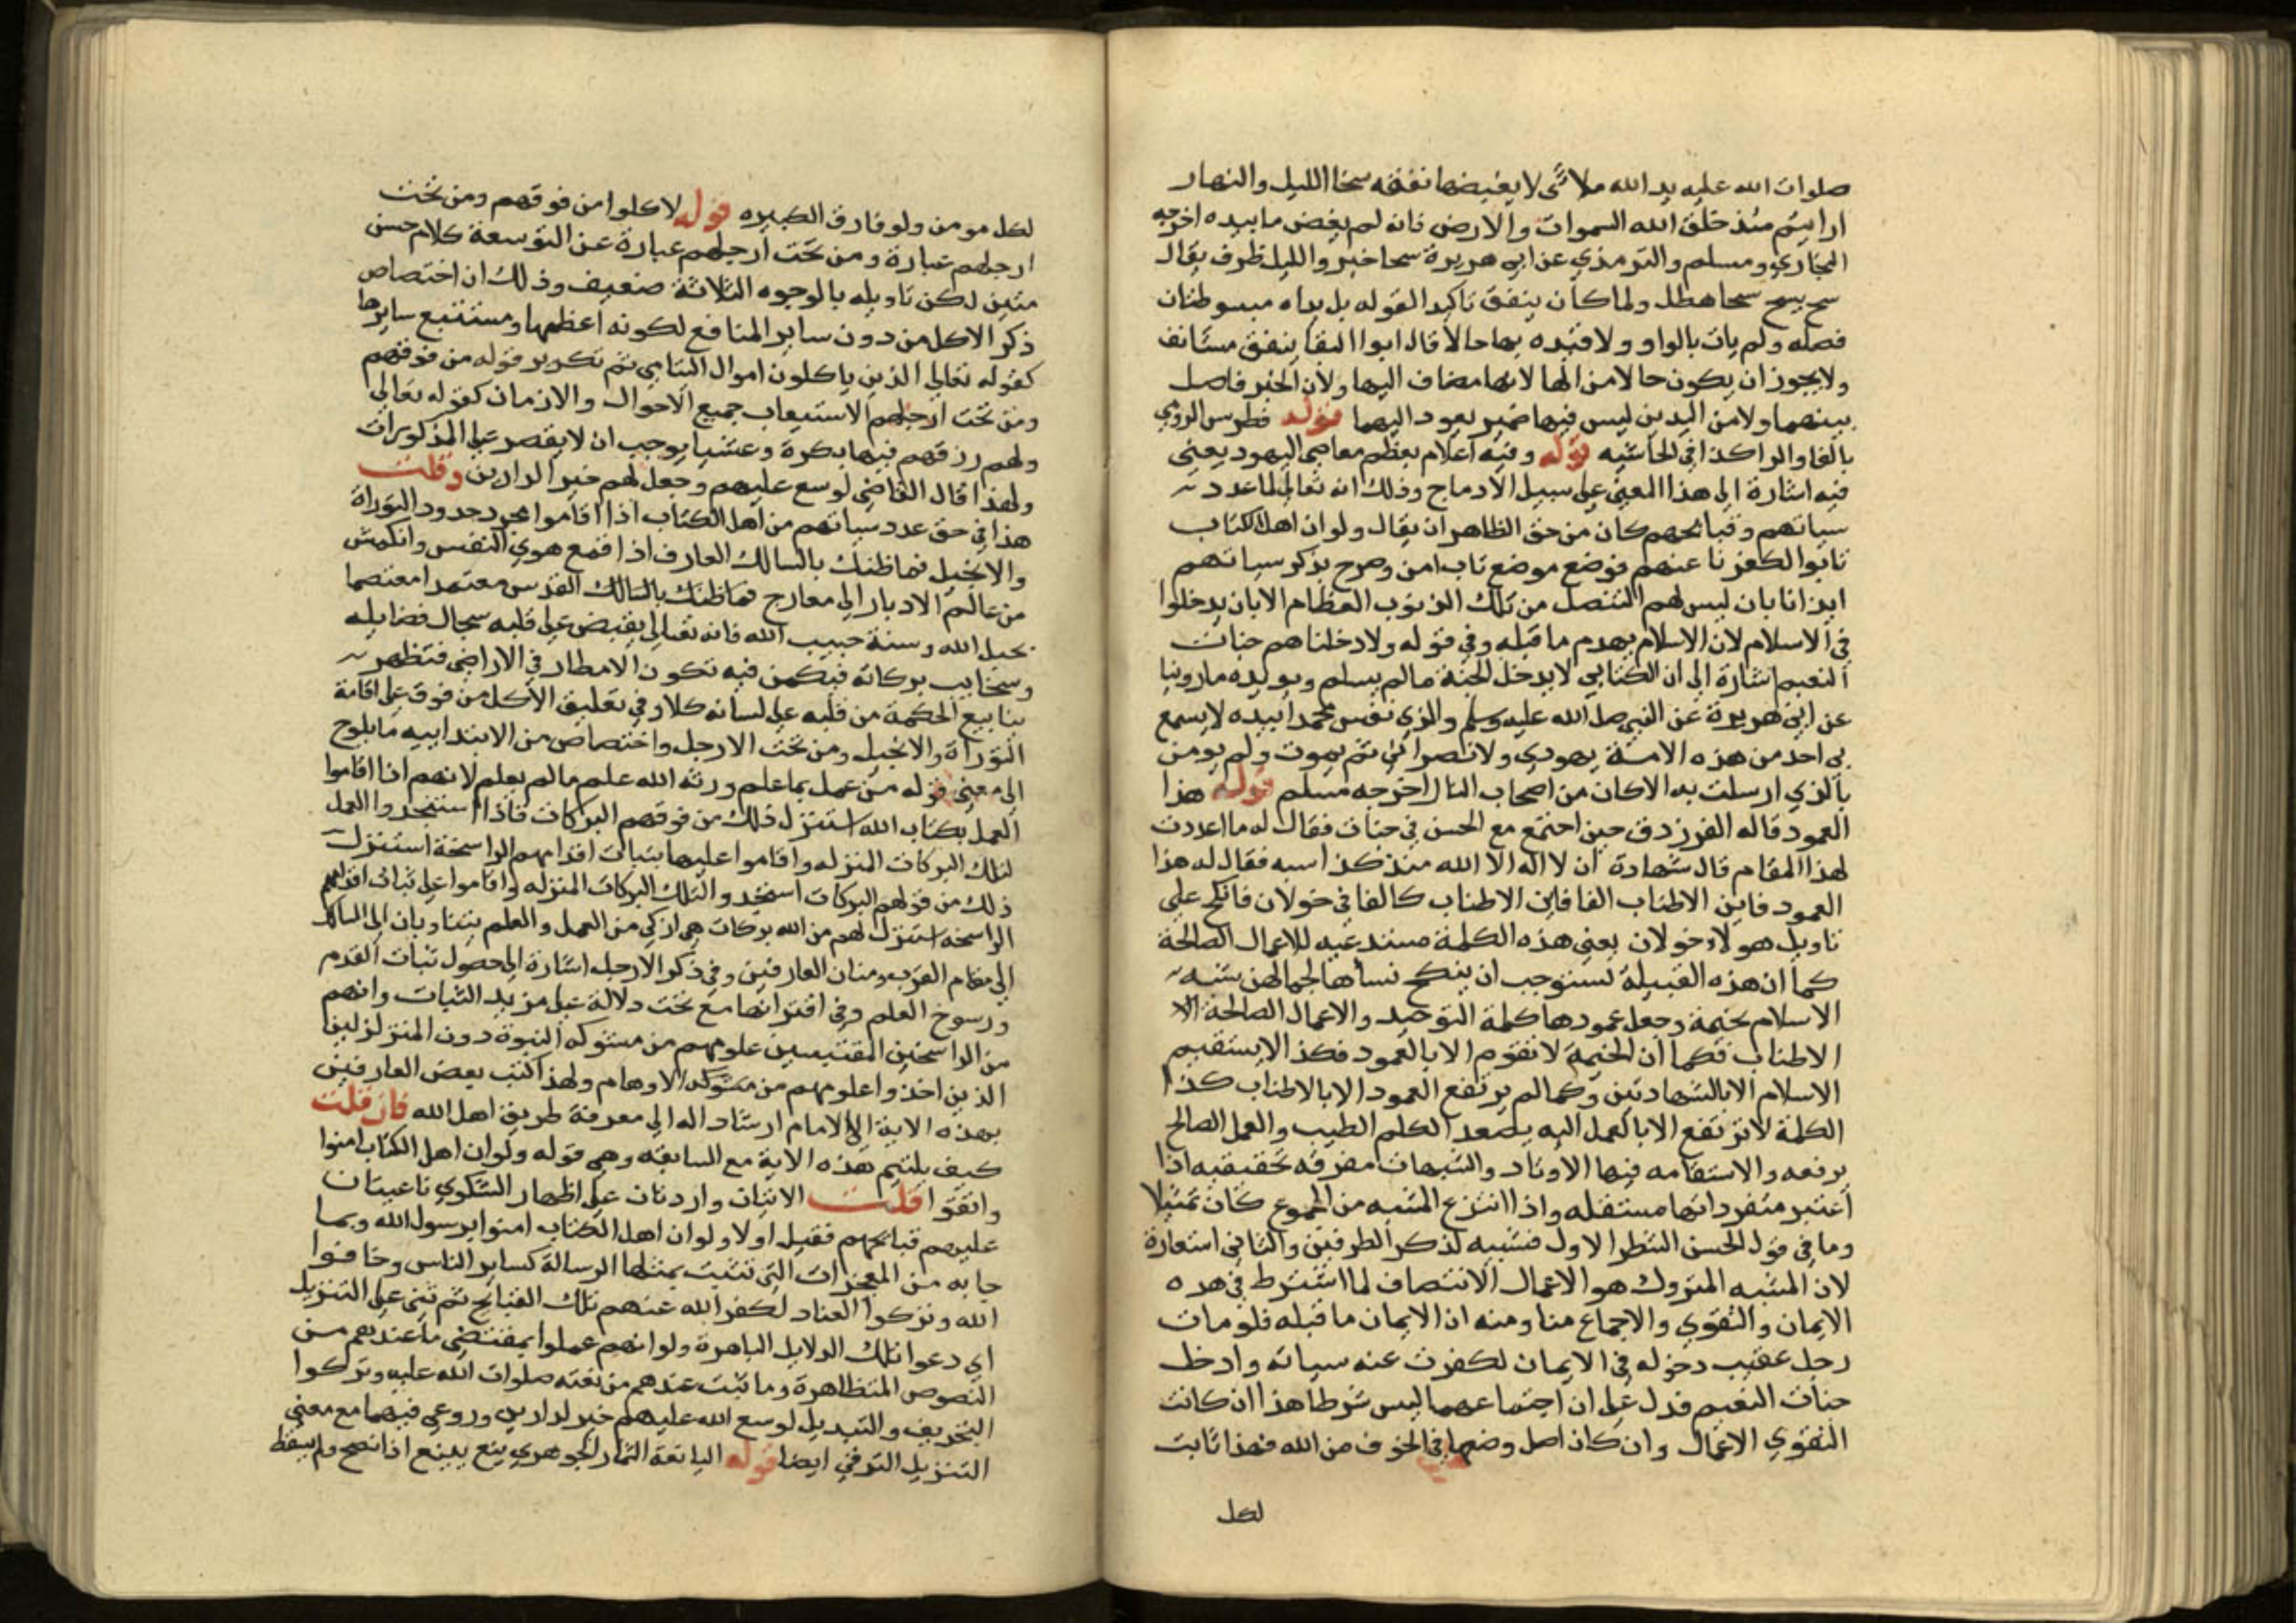 صلوات الله عليه يد الله ملائ لا يغيضها نفقه سخا الليل والنهار
ارايتم منذ خلق الله السموات والارض فانه لم يغض ما بيده اخرجه
البخاري ومسلم والترمذي عن ابي هريرة سحا خبر والليل ظرف يقال
سح يسح سحا هطل ولما كان ينفق تاكيدا لقوله بل يداه مبسوطتان
فصله ولم يات بالواو ولا قيده بها حالا قال ابو البقا ينفق مستانف
ولا يجوز ان يكون حالا من الها لانها مضاف اليها ولان الخبر فاصل
بينهما ولا من اليدين ليس فيها ضمير يعود اليهما قوله فطرس الرومي
بالفا والراكذا في الحاشيه قوله وفيه اعلام بعظم معاصي اليهود يعني
فيه اشارة الى هذا المعنى على سبيل الادماج وذلك انه تعالى لما عدد
سياتهم وقبايحهم كان من حق الظاهر ان يقال ولو ان اهل الكتاب
تابوا لكفرنا عنهم فوضع موضع تاب امن وصرح بذكر سياتهم
ايذانا بان ليس لهم التنصل من تلك الذنوب العظام الا بان يدخلوا
في الاسلام لان الاسلام يهدم ما قبله وفي قوله ولادخلناهم جنات
النعيم اشارة الى ان الكتابي لا يدخل الجنة ما لم يسلم ويويده ماروينا
عن ابي هريرة عن النبي صلى الله عليه وسلم والذي نفس محمد بيده لا يسمع
بي احد من هذه الامة يهودي ولا نصراني ثم يموت ولم يومن
بالذي ارسلت به الا كان من اصحاب النار اخرجه مسلم قوله هذا
العمود قاله الفرزدق حين اجتمع مع الحسن في جنات فقال له ما اعددت
لهذا المقام قال شهادة ان لا اله الا الله منذ كذا سنه فقال له هذا
العمود فاين الاطناب الفا فاين الاطناب كالفا في خولان فانكح على
تاويل هولاء خولان يعني هذه الكلمة مستدعيه للاعمال الصالحة
كما ان هذه القبيلة تستوجب ان ينكح نساها لجمالهن شبه
الاسلام بخيمة وجعل عمودها كلمة التوحيد والاعمال الصالحة الا
الاطناب فكما ان الخيمة لا تقوم الا بالعمود فكذا لا يستقيم
الاسلام الا بالشهادتين وكما لم يرتفع العمود الا بالاطناب كذا
الكلمة لا ترتفع الا بالعمل اليه يصعد الكلم الطيب والعمل الصالح
يرفعه والاستقامه فيها الاوتاد والتشبيهات مفرقه تحقيقيه اذا
اعتبر مفرداتها مستقله واذا انتزع المشبه من المجموع كان تمثيلا
وما في قول الحسن الشطر الاول فتشبيه لذكر الطرفين والثاني استعارة
لان المشبه المتروك هو الاعمال الانتصاف لما اشترط في هده
الايمان والتقوي والاجماع منا ومنه ان الايمان ما قبله فلو مات
رجل عقيب دخوله في الايمان لكفرت عنه سياته وادخل
جنات النعيم فدل على ان اجتماعهما ليس شرطا هذا ان كانت
التقوي الاعمال وان كان اصل وضعها في الخوف من الله فهذا ثابت
لكل
لكل مومن ولو قارف الكبيره قوله لاكلوا من فوقهم ومن تحت
ارجلهم عبارة ومن تحت ارجلهم عبارة عن التوسعة كلام حسن
متين لكن تاويله بالوجوه الثلاثة ضعيف وذلك ان اختصاص
ذكر الاكل من دون ساير المنافع لكونه اعظمها ومستتبع سايرها
كقوله تعالى الذين ياكلون اموال اليتامي ثم تكرير قوله من فوقهم
ومن تحت ارجلهم لاستيعاب جميع الاحوال والازمان كقوله تعالى
ولهم رزقهم فيها بكرة وعشيا يوجب ان لا يقصر على المذكورات
ولهذا قال القاضي لوسع عليهم وجعل لهم خير الدارين وقلت
هذا في حق عدد سياتهم من اهل الكتاب اذا اقاموا مجرد حدود التوراة
والانجيل فما ظنك بالسالك العارف اذا قمع هوي النفس وانكمش
من عالم الادبار الى معارج فما ظنك بالسالك القدس معتمدا معتصما
بحبل الله وسنة حبيب الله فانه تعالى يفيض على قلبه سجال فضايله
وسحايب بركاته فيكمن فيه تكون الامطار في الاراضي فتظهر
ينابيع الحكمة من قلبه على لسانه كلار في تعليق الاكل من فوق على اقامة
التوراة والانجيل ومن تحت الارجل واختصاص من الابتداييه ما يلوح
الى معنى قوله من عمل بما علم ورثه الله علم ما لم يعلم لانهم اذا اقاموا
العمل بكتاب الله استنزل ذلك من فوقهم البركات فاذا استنجدوا العمل
لتلك البركات المنزله واقاموا عليها بثبات اقدامهم الراسخة استنزل
ذلك من فوقهم البركات استنجدوا لتلك البركات المنزله واقاموا على ثبات اقدامهم
الراسخه استنزل لهم من الله بركات هي ازكي من العمل والعلم يتناوبان الى السالك
الى مقام القرب ومنازل العارفين وفي ذكر الارجل اشارة الى حصول ثبات القدم
ورسوخ العلم وفي اقترانها مع تحت دلالة على مزيد الثبات وانهم
من الراسخين المقتبسين علومهم من مشوكه النبوة دون المتزلزلين
الذين اخذوا علومهم من مشوكه الاوهام ولهذا كتب بعض العارفين
بهذه الاية الى الامام ارشادا له الى معرفة طريق اهل الله فان قلت
كيف يلتيم هذه الاية مع السابقه وهي قوله ولو ان اهل الكتاب امنوا
واتقوا قلت الاثنان واردتان على اظهار الشكوي ناعيتان
عليهم قبايحهم فقيل اولا ولو ان اهل الكتاب امنوا برسول الله وبما
جا به من المعجزات التي تثبت بمثلها الرسالة كساير الناس وخافوا
الله وتركوا العناد لكفر الله عنهم تلك القبايح ثم ثني على التنزيل
اي دعوا تلك الدلايل الباهرة ولو انهم عملوا بمقتضي ما عندهم من
النصوص المتظاهرة وما ثبت عندهم من نعته صلوات الله عليه وتركوا
التحريف والتبديل لوسع الله عليهم خير الدارين وروعي فيهما مع معنى
التنزيل الترقي ايضا قوله اليانعة الثمار الجوهري ينع يينع اذا نضح ولم يسقط